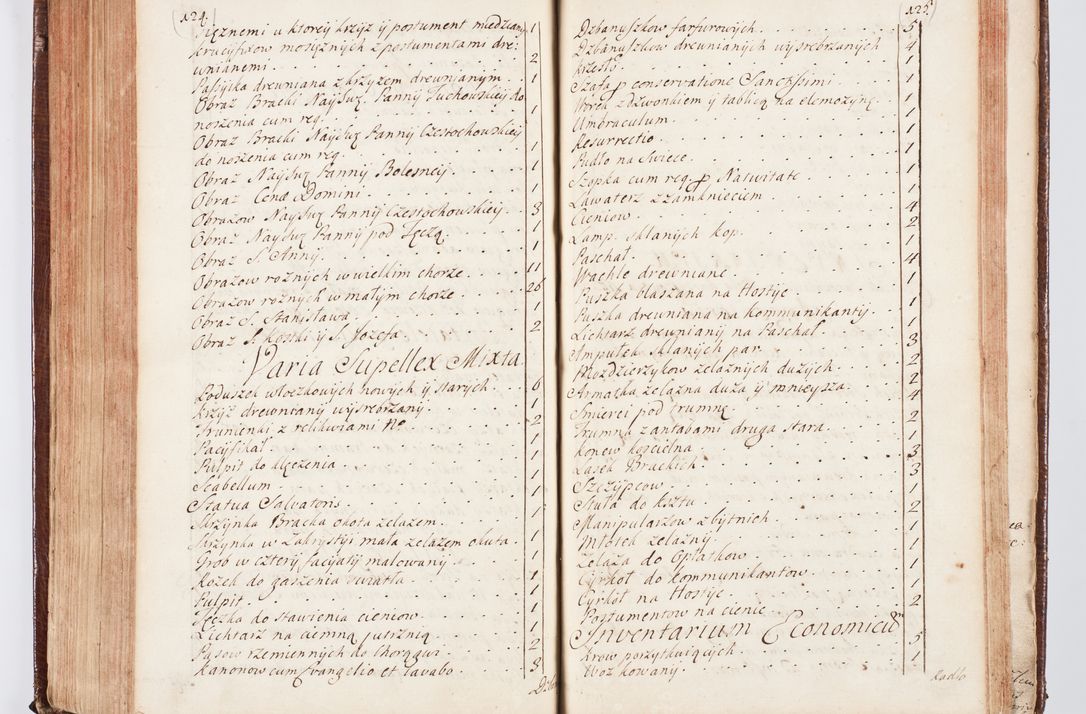 124.
Ręcznemi u ktoreij krzyż ÿ postument miedziany 1
krucyfixow mosiężnych z postumentami dre:
wnianemi 2
Passyika drewniana z krzyzem drewnianym 1
Obraz Bracki Naÿśwę Pannÿ Tuchowskieÿ do
noszenia cum req. 1
Obraz Bracki Naÿśwę Pannÿ Częstochowskieÿ
do noszenia cum req. 1
Obraz Naÿśwę Pannÿ Bolesneÿ 1
Obraz Cenæ Domini 1
Obrazow Naÿśwę Pannÿ Częstochowskieÿ 3
Obraz Naÿśwę Pannÿ pod Tęczą 1
Obraz S. Annÿ 1
Obrazow roznÿch w wielkim chorze 11
Obrazow roznÿch w małÿm chorze 26
Obraz S. Stanisława 1
Obraz S. Kostki ÿ S. Jozefa 2
Varia Supellex Mixta
Poduszek włoczkowÿch nowÿch ÿ starÿch 6
Krzÿż drewnianÿ wÿsrebrzanÿ 1
Trunienki z relikwiami No 2
Pacÿfikał 1
Pulpit do klęczenia 1
Scabellum 1
Statua Salvatoris 1
Skrzÿnka Bracka okota zelazem 1
Skrzÿnka w Zakrÿstÿi mała zelazem okuta 1
Grob w czterÿ facÿatÿ malowanÿ 1
Rozek do gaszenia swiatła 1
Pulpit 1
Tęczka do stawienia cieniow 1
Lichtarz na ciemną jutrznią 1
Pasow rzemiennÿch do Chorągwi 2
Kanonow cum Evangelio et Lavabo 3
125.
Dzbanuszkow farfurowÿch 5
Dzbanuszkow drewnianÿch wÿsrebrzanÿch 4
Krzesło 1
Szafa p conservatione Sanctssimi 1
Worek z dzwonkiem ÿ tablicą na elemozÿnę 1
Umbraculum 1
Resurrectio 1
Pudło na Swiece 1
Szopka cum req. p Nativitate 1
Lawaterz z zamknieciem 1
Cieniow 4
Lamp. sklanÿch kop. 2
Paschał 1
Wachle drewniane 4
Puszka blaszana na Hostÿe 1
Puszka drewniana na kommunikantÿ 1
Lichtarz drewnianÿ na Paschał 1
Ampułek sklanÿch par 3
Mozdzierzÿkow zelaznÿch duzÿch 2
Armatka zelazna duza ÿ mnieÿsza 2
Smierci pod trumnę 4
Trumna z antabami druga stara 2
Konew koscielna 1
Lasek Brackich 3
Szczÿpcow 3
Stuła do ksztu 1
Manipularzow zbÿtnich 2
Młotek zelaznÿ 1
Zelaza do Opłatkow 1
Cÿrkoł do kommunikantow 1
Cÿrkoł na Hostÿe 1
Postumentow na cienie 2
Inventarium Economicum
Krow porzÿtkuiącÿch 5
Woz kowanÿ 1
Radło